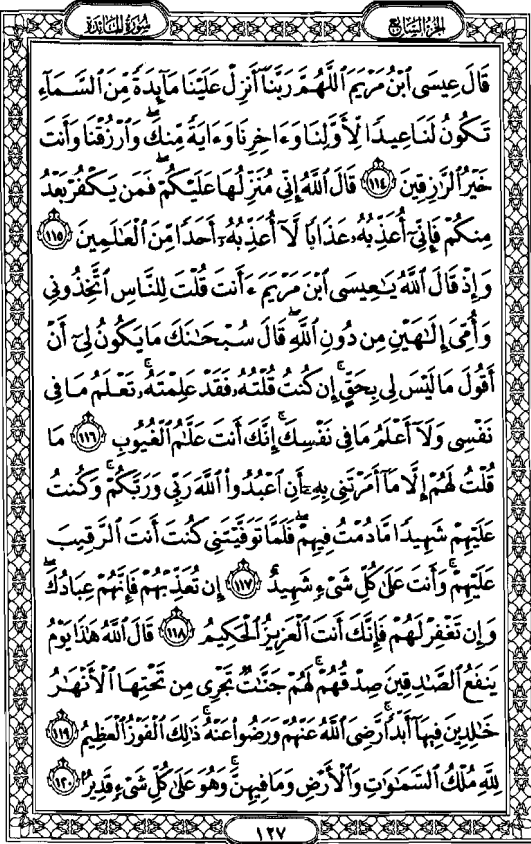 الجزء السابع
سورة المائدة
قَالَ عِيسَى ابْنُ مَرْيَمَ اللَّهُمَّ رَبَّنَا أَنزِلْ عَلَيْنَا مَآئِدَةً مِّنَ السَّمَآءِ
تَكُونُ لَنَا عِيدًا لِّأَوَّلِنَا وَءَاخِرِنَا وَءَايَةً مِّنكَ ۖ وَارْزُقْنَا وَأَنتَ
خَيْرُ الرَّازِقِينَ ١١٤ قَالَ اللَّهُ إِنِّي مُنَزِّلُهَا عَلَيْكُمْ ۖ فَمَن يَكْفُرْ بَعْدُ
مِنكُمْ فَإِنِّيٓ أُعَذِّبُهُۥ عَذَابًا لَّآ أُعَذِّبُهُۥٓ أَحَدًا مِّنَ الْعَالَمِينَ ١١٥
وَإِذْ قَالَ اللَّهُ يَاعِيسَى ابْنَ مَرْيَمَ ءَأَنتَ قُلْتَ لِلنَّاسِ اتَّخِذُونِي
وَأُمِّيَ إِلَاهَيْنِ مِن دُونِ اللَّهِ ۖ قَالَ سُبْحَانَكَ مَا يَكُونُ لِيٓ أَنْ
أَقُولَ مَا لَيْسَ لِي بِحَقٍّ ۚ إِن كُنتُ قُلْتُهُۥ فَقَدْ عَلِمْتَهُۥ ۚ تَعْلَمُ مَا فِي
نَفْسِي وَلَآ أَعْلَمُ مَا فِي نَفْسِكَ ۚ إِنَّكَ أَنتَ عَلَّامُ الْغُيُوبِ ١١٦ مَا
قُلْتُ لَهُمْ إِلَّا مَآ أَمَرْتَنِي بِهِۦٓ أَنِ اعْبُدُوا اللَّهَ رَبِّي وَرَبَّكُمْ ۚ وَكُنتُ
عَلَيْهِمْ شَهِيدًا مَّا دُمْتُ فِيهِمْ ۖ فَلَمَّا تَوَفَّيْتَنِي كُنتَ أَنتَ الرَّقِيبَ
عَلَيْهِمْ ۚ وَأَنتَ عَلَىٰ كُلِّ شَيْءٍ شَهِيدٌ ١١٧ إِن تُعَذِّبْهُمْ فَإِنَّهُمْ عِبَادُكَ ۖ
وَإِن تَغْفِرْ لَهُمْ فَإِنَّكَ أَنتَ الْعَزِيزُ الْحَكِيمُ ١١٨ قَالَ اللَّهُ هَاذَا يَوْمُ
يَنفَعُ الصَّادِقِينَ صِدْقُهُمْ ۚ لَهُمْ جَنَّاتٌ تَجْرِي مِن تَحْتِهَا الْأَنْهَارُ
خَالِدِينَ فِيهَآ أَبَدًا ۚ رَّضِيَ اللَّهُ عَنْهُمْ وَرَضُوا عَنْهُ ۚ ذَالِكَ الْفَوْزُ الْعَظِيمُ ١١٩
لِلَّهِ مُلْكُ السَّمَاوَاتِ وَالْأَرْضِ وَمَا فِيهِنَّ ۚ وَهُوَ عَلَىٰ كُلِّ شَيْءٍ قَدِيرٌ ١٢٠
١٢٧